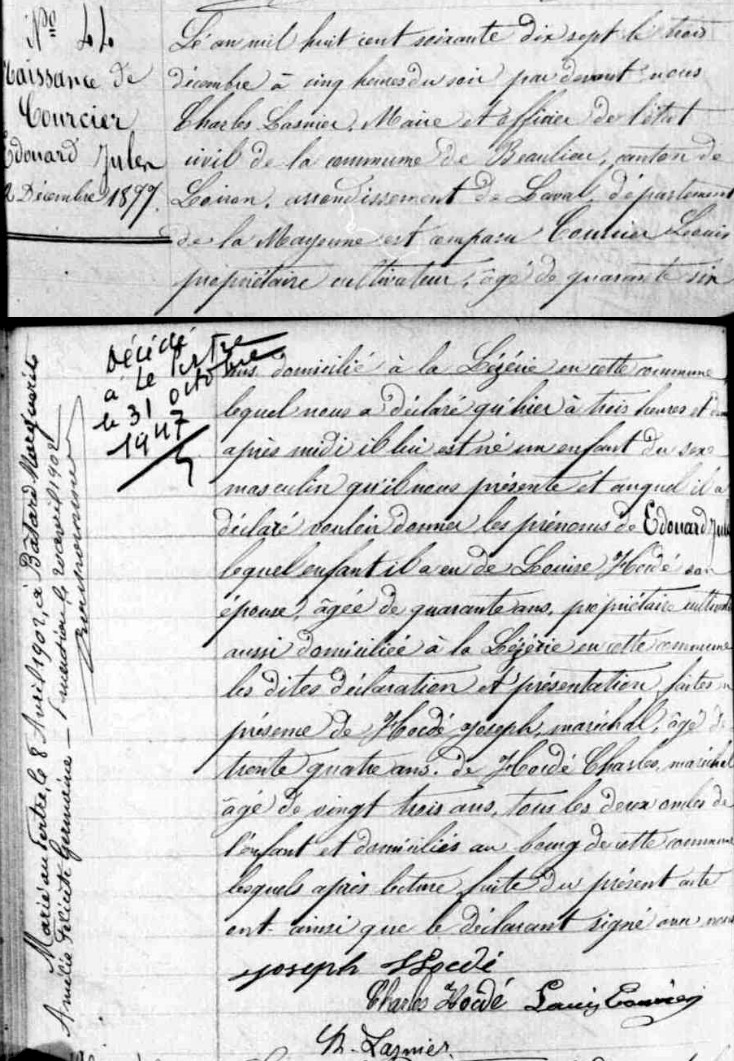 No 44
Naissance de
Courcier
Edouard Jules
2 Décembre 1877.
L'é an mil huit cent soixante dix sept le trois
décembre à cinq heures du soir par devant nous
Charles Lasnier, Maire et officier de l'état
civil de la commune de Beaulieu, canton de
Loiron, arrondissement de Laval, département
de la Mayenne est comparu Courcier Louis
propriétaire cultivateur, âgé de quarante six
ans domicilié à la Lézérie en cette commune
lequel nous a déclaré qu'hier à trois heures et
après midi il lui est né un enfant du sexe
masculin qu'il nous présente et auquel il a
déclaré vouloir donner les prénoms de Edouard Jules
lequel enfant il a eu de Louise Hocdé son
épouse, âgée de quarante ans, propriétaire
aussi domiciliée à la Lézérie en cette commune
les dites déclaration et présentation faites en
présence de Hocdé Joseph, maréchal, âgé de
trente quatre ans. de Hocdé Charles, maréchal
âgé de vingt trois ans, tous les deux oncles de
l'enfant et domiciliés au bourg de cette commune
lesquels après lecture faite du présent acte
ont ainsi que le déclarant signé avec nous
Joseph Hocdé
Charles Hocdé Louis Courcier
Ch. Lasnier
Décédé
à Le Pertre
le 31 octobre
1947
Marié au Pertre, le 8 Avril 1902, à Bâtard Marguerite
Amélie Félicité Germaine _ Pr mention le 20 avril 1902